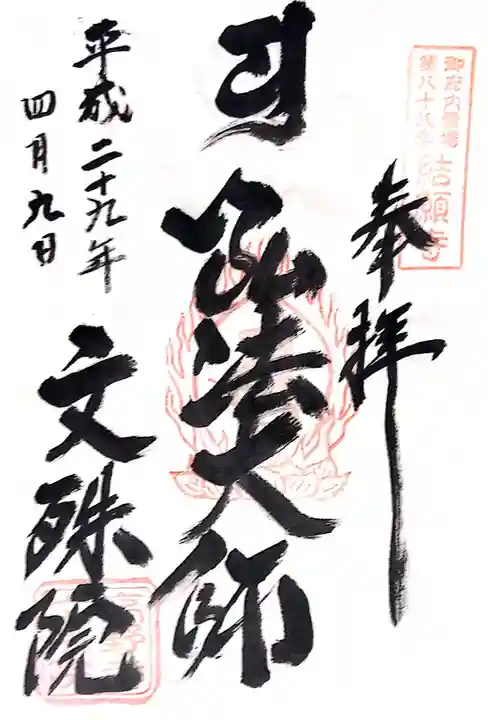 御府内霊場
第八十八番 結願寺
奉拝
弘法大師
平成二十九年
四月九日
文殊院